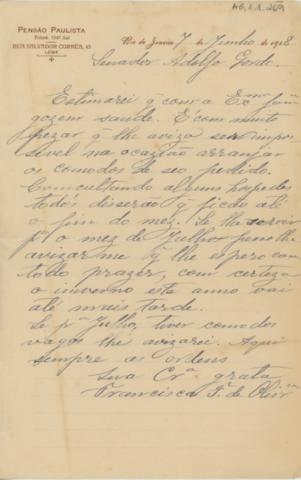 AG.1.1.269
PENSÃO PAULISTA
Teleph. 1347 Sul
RUA SALVADOR CORRÊA, 43
LEME
Rio de Janeiro 7 de Junho de 1918
Senador Adolfo Gordo
Estimarei q̃ com a Exma fam
gozem saude. E com muito
pezar q̃ lhe aviza ser impos
sivel na ocazião arranjar
os comodos de seo pedido.
Comcultando alguns hospedes
todos diserão q̃ ficão até
o fim do mez. Se lhe servir
pa o mez de Julho pense lhe
avizarme q̃ lhe espero com
todo prazer, com certeza
o inverno este anno vai
até mais tarde.
Se pa Julho, tiver comodos
vagos lhe avizarei. Aqui
sempre as ordens
Sua Cra grata
Francisca
de Olivra